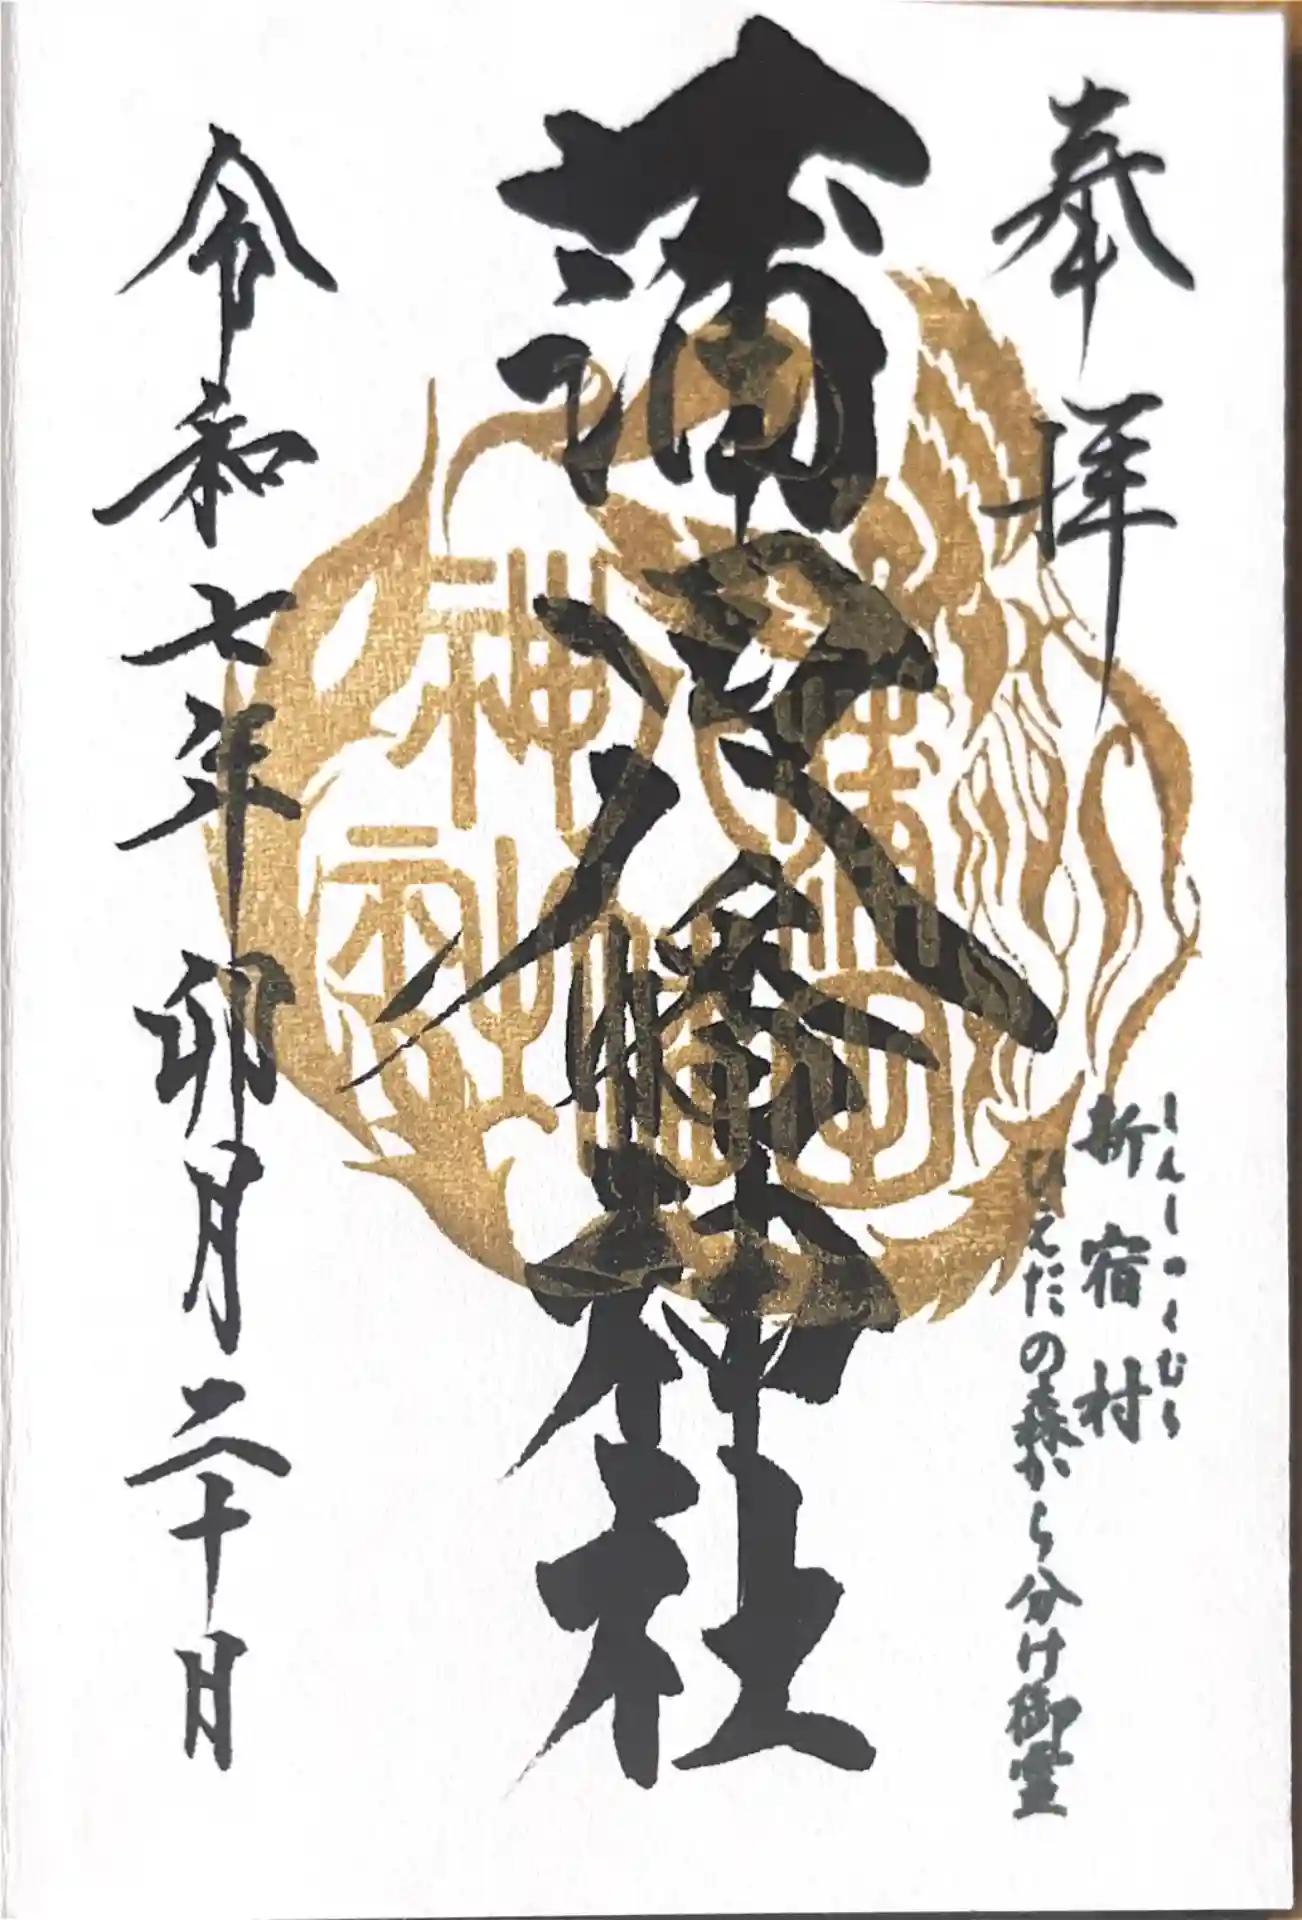 奉拝
新宿村
しんしゅくむら
ひえだの森から分け御霊
蒲田八幡神社
蒲田八幡神社
令和七年卯月二十日